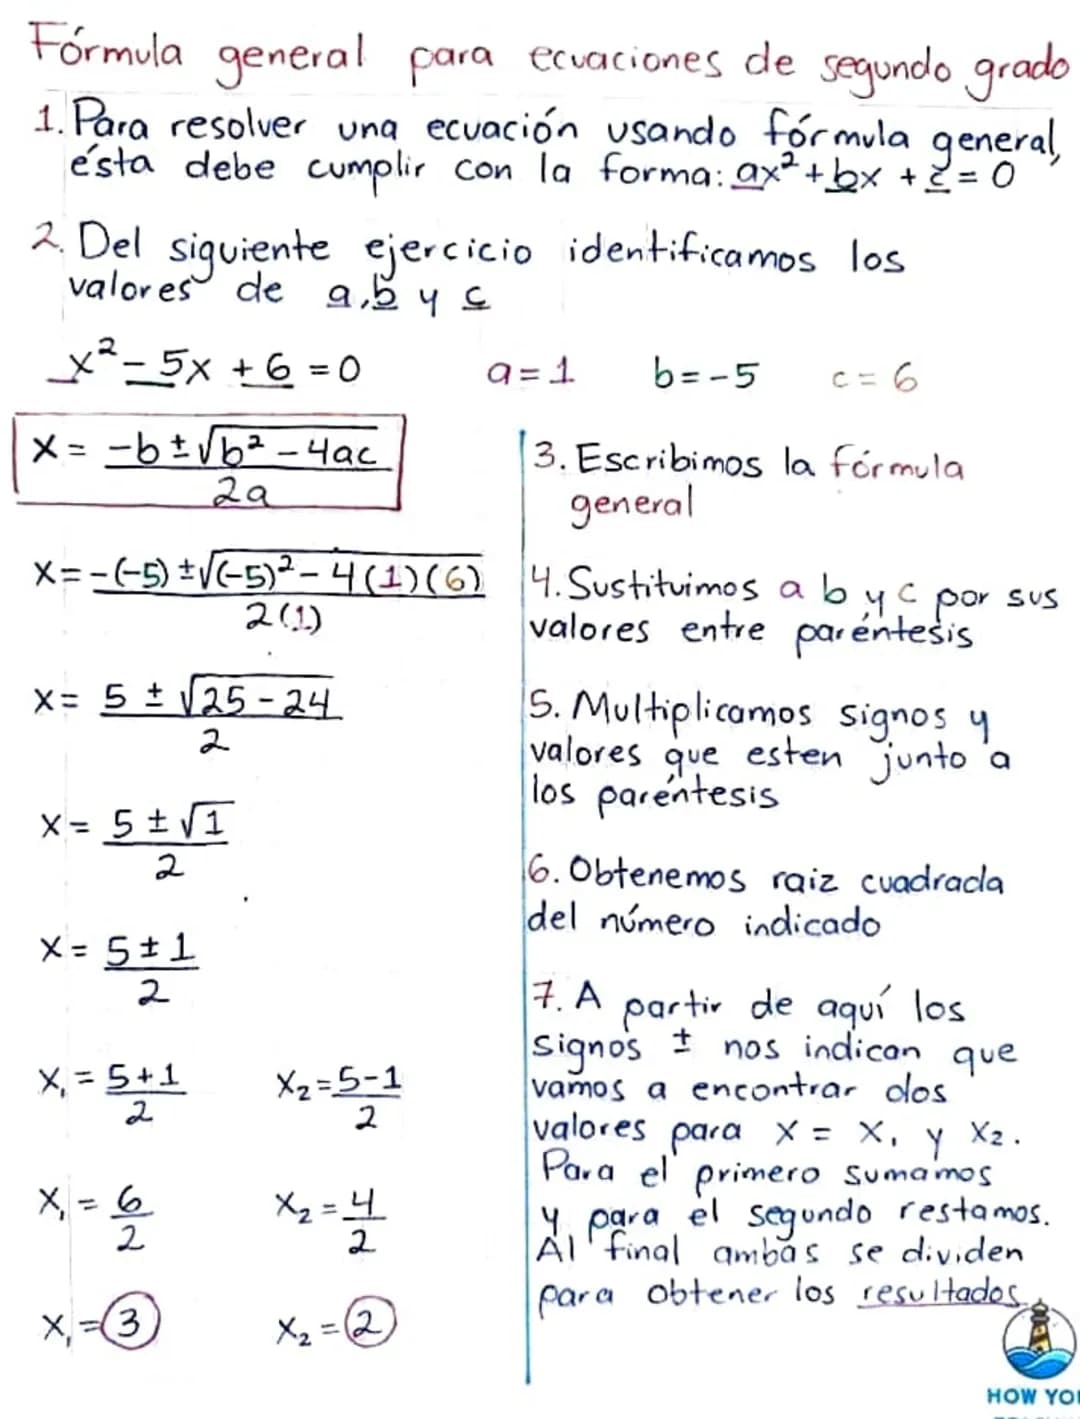 Fórmula general para ecuaciones de segundo grado
1. Para resolver una ecuación usando fórmula general,
ésta debe cumplir con la forma: ax² + bx + c = 0
2. Del siguiente ejercicio identificamos los
valores de a, b y c
x² - 5x + 6 = 0 a = 1 b = -5 c = 6
x = (-b ± √(b² - 4ac)) / 2a
3. Escribimos la fórmula
general
x = (-(-5) ± √((-5)² - 4(1)(6))) / 2(1)
4. Sustituimos a b y c por sus
valores entre paréntesis
x = (5 ± √(25 - 24)) / 2
5. Multiplicamos signos y
valores que esten junto a
los paréntesis
x = (5 ± √1) / 2
6. Obtenemos raiz cuadrada
del número indicado
x = (5 ± 1) / 2
7. A partir de aquí los
signos ± nos indican que
vamos a encontrar dos
valores para x = x₁ y x₂.
Para el primero sumamos
y para el segundo restamos.
Al final ambas se dividen
para obtener los resultados
x₁ = (5 + 1) / 2 x₂ = (5 - 1) / 2
x₁ = 6 / 2 x₂ = 4 / 2
x₁ = 3 x₂ = 2
HOW YO